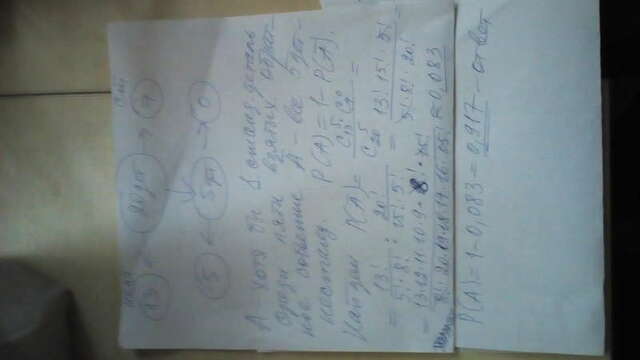 нест ст
13 20 дет 7
5 5 дет 0
A - хотя бы 1 станд. деталь
среди пяти взятых обрат-
ное событие Ā - все 5 дет -
нестанд. P(A) = 1 - P(Ā).
Найдем P(Ā) = C₁₃⁵ · C₇⁰ / C₂₀⁵ =
= 13! / 5! · 8! : 20! / 15! · 5! = 13! · 15! · 5! / 5! · 8! · 20! =
= 13·12·11·10·9·8! · 15! / 8! · 20·19·18·17·16·15! ≈ 0,083
P(A) = 1 - 0,083 = 0,917 - ответ